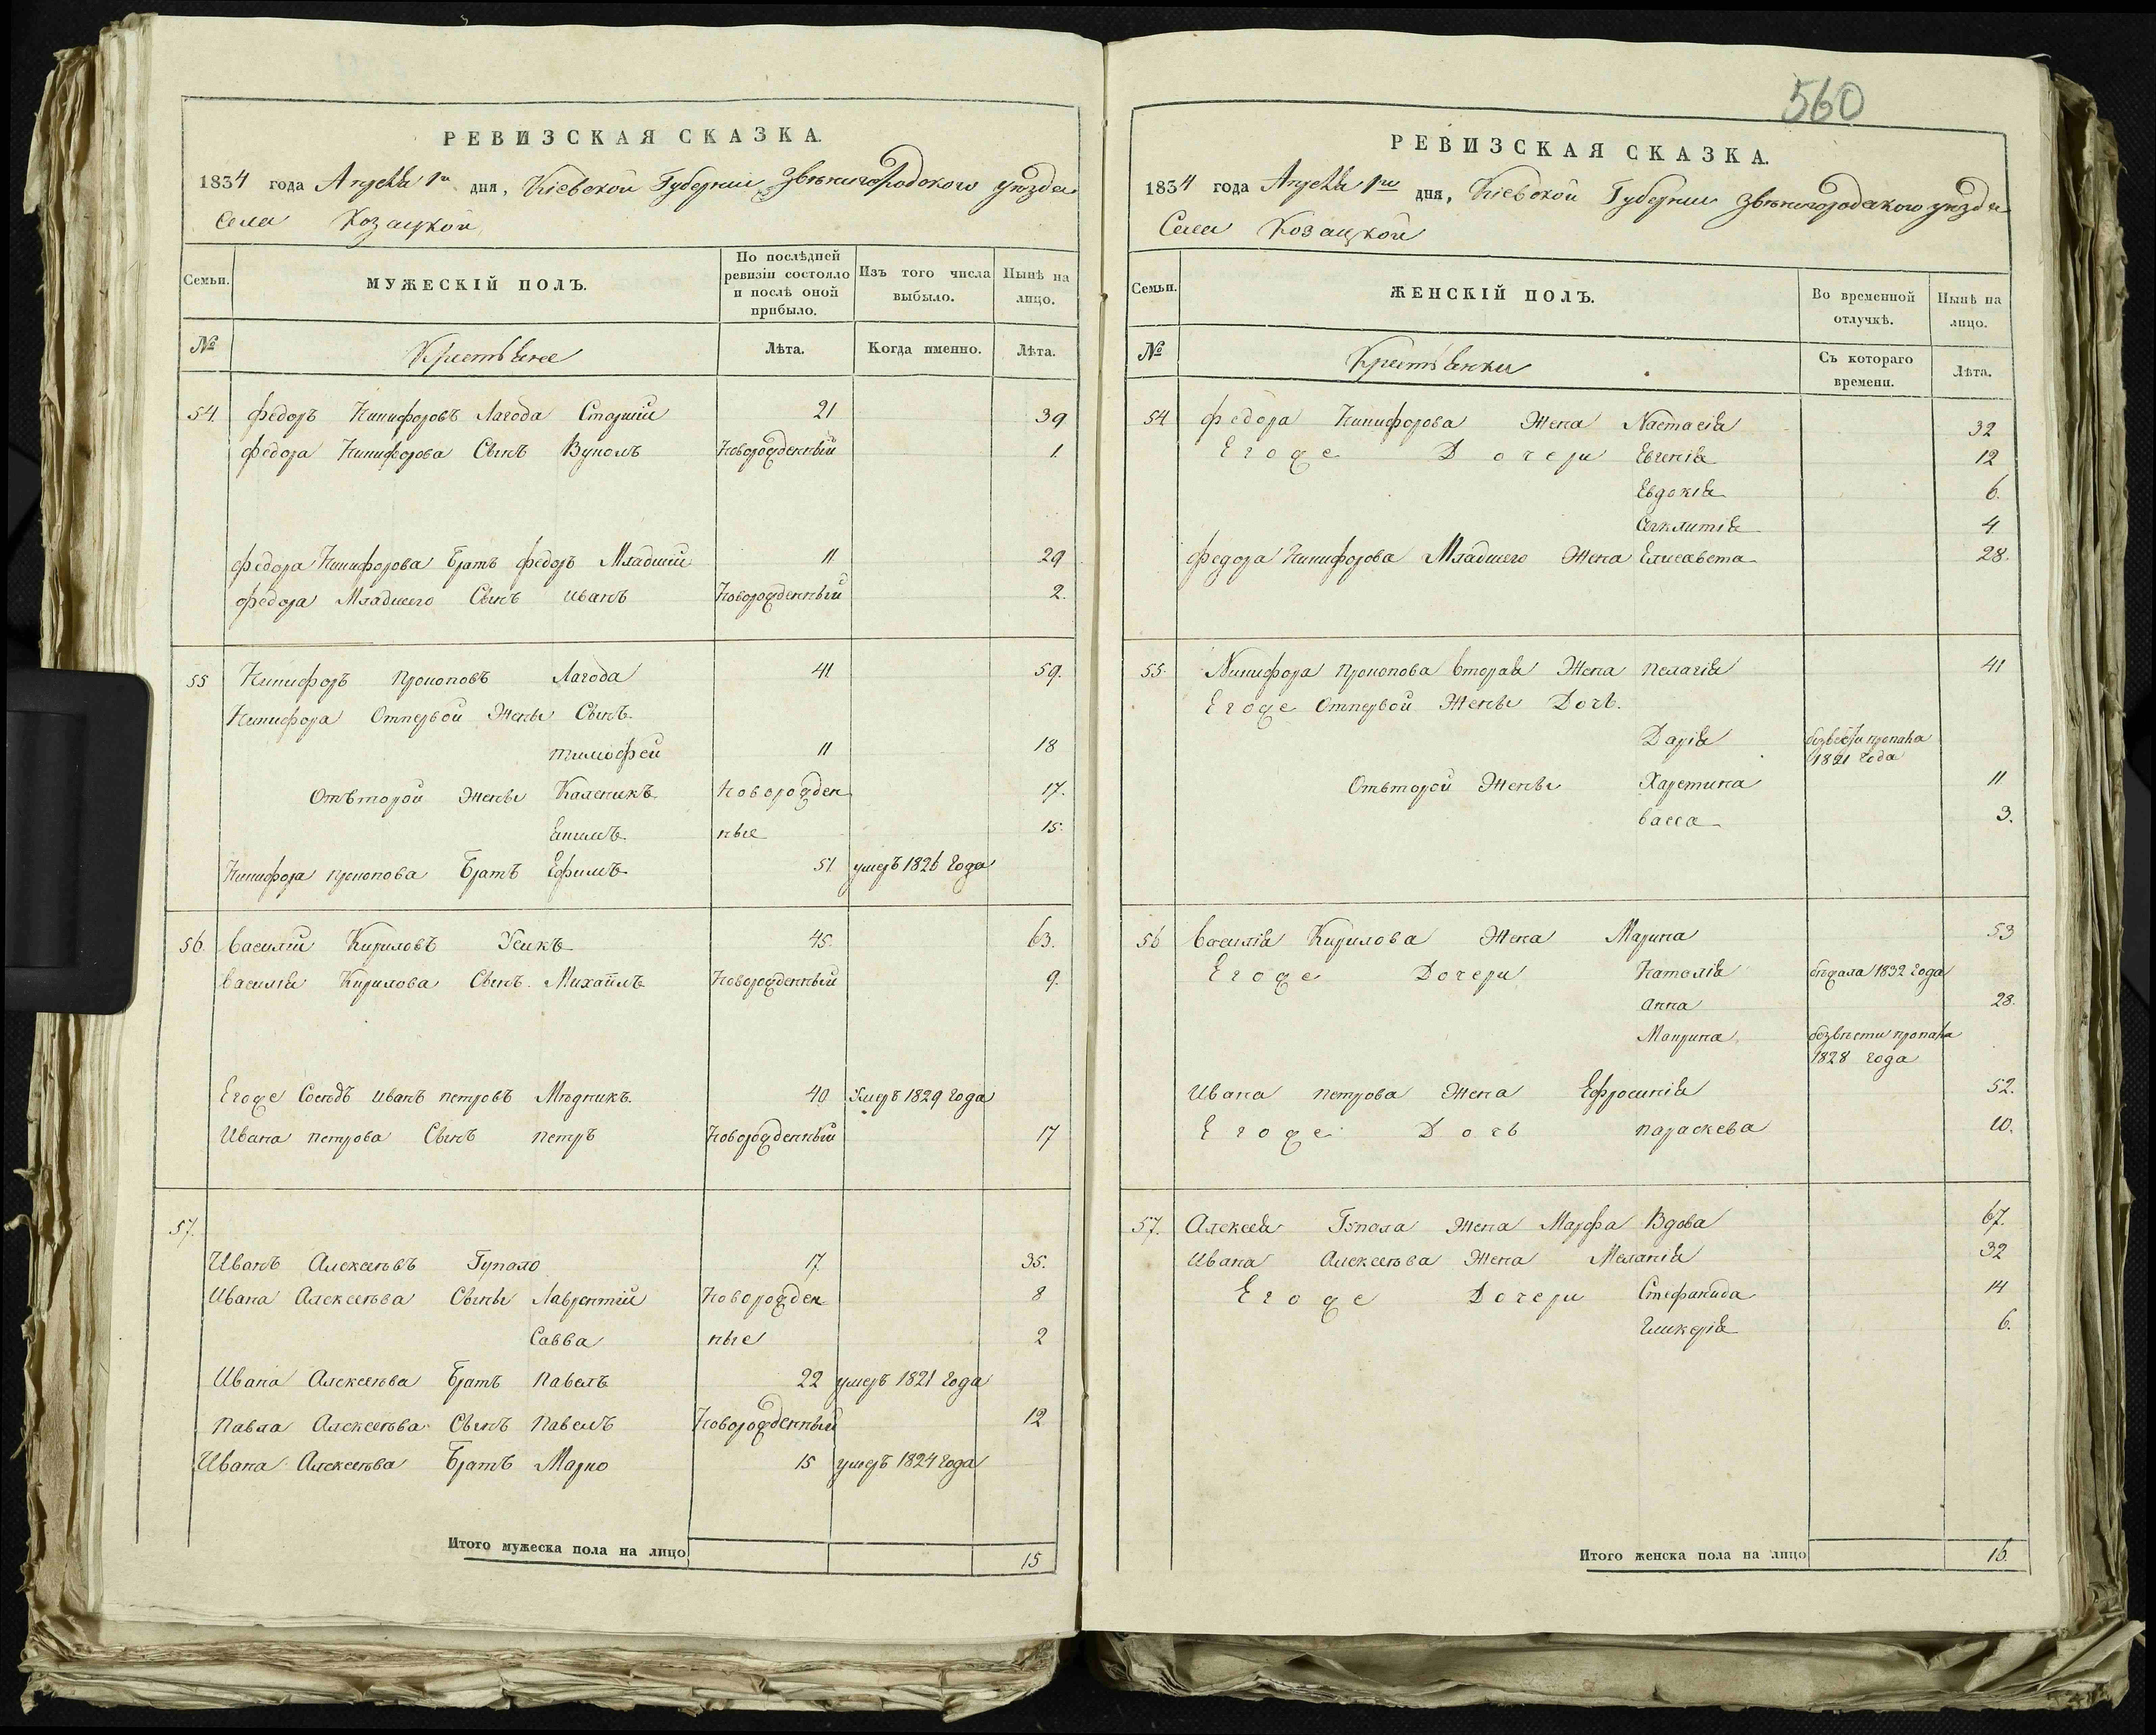 560
РЕВИЗСКАЯ СКАЗКА.
1834 года Апреля 1го дня, Кіевской Губерніи Звѣнигородского уѣзда
Села Козацкой
Семьи. МУЖЕСКІЙ ПОЛЪ. По послѣдней ревизіи состояло и послѣ оной прибыло. Изъ того числа выбыло. Нынѣ на лицо.
№ Крестьяне Лѣта. Когда именно. Лѣта.
54. Федоръ Никифоровъ Лагода Старшій 21 39
Федора Никифорова Сынъ Вуколъ Новорожденный 1.
Федора Никифорова Братъ Федоръ Младшій 11 29
Федора Младшего Сынъ Иванъ Новорожденный 2.
55 Никифоръ Прокоповъ Лагода 41 59.
Никифора Отпервой Жены Сынъ.
Тимофей 11 18
Отвторой Жены Каленикъ Новорожден 17.
Екимъ ные 15.
Никифора Прокопова Братъ Ефимъ 51 умеръ 1826 года
56. Василій Кириловъ Усикъ 45. 63.
Василія Кирилова Сынъ. Михайлъ Новорожденный 9.
Егоже Сосѣдъ Иванъ Петровъ Мѣдникъ. 40 Умеръ 1829 года
Ивана Петрова Сынъ Петръ Новорожденный 17
57.
Иванъ Алексѣевъ Гупало 17. 35.
Ивана Алексѣева Сыны Лаврентій Новорожден 8
Савва ные 2
Ивана Алексѣева Братъ Павелъ 22 умеръ 1821 года
Павла Алексѣева Сынъ Павелъ Новорожденный 12
Ивана Алексѣева Братъ Марко 15 умеръ 1824 года
Итого мужеска пола на лицо 15
РЕВИЗСКАЯ СКАЗКА.
1834 года Апреля 1го дня, Кіевской Губерніи Звѣнигородского уѣзда
Села Козацкой
Семьи. ЖЕНСКІЙ ПОЛЪ. Во временной отлучкѣ. Нынѣ на лицо.
№ Крестьянки Съ котораго времени. Лѣта.
54 Федора Никифорова Жена Настасія 32
Егоже Дочери Евгенія 12
Евдокія 6.
Секлитія 4
Федора Никифорова Младшего Жена Елисавета 28.
55. Никифора Прокопова вторая Жена Пелагія 41
Егоже Отпервой Жены Дочь.
Дарія безвести пропала
1821 года
Отвторой Жены Харетина 11
Васса 3.
56 Василія Кирилова Жена Марина 53
Егоже Дочери Наталія бѣжала 1832 года
Анна 28.
Макрина безвѣсти пропала
1828 года
Ивана Петрова Жена Ефросинія 52.
Егоже Дочь Параскева 10.
57. Алексея Гупала Жена Марфа Вдова 67.
Ивана Алексѣева Жена Меланія 32
Егоже Дочери Стефанида 14
Гликерія 6.
Итого женска пола на лицо 16.